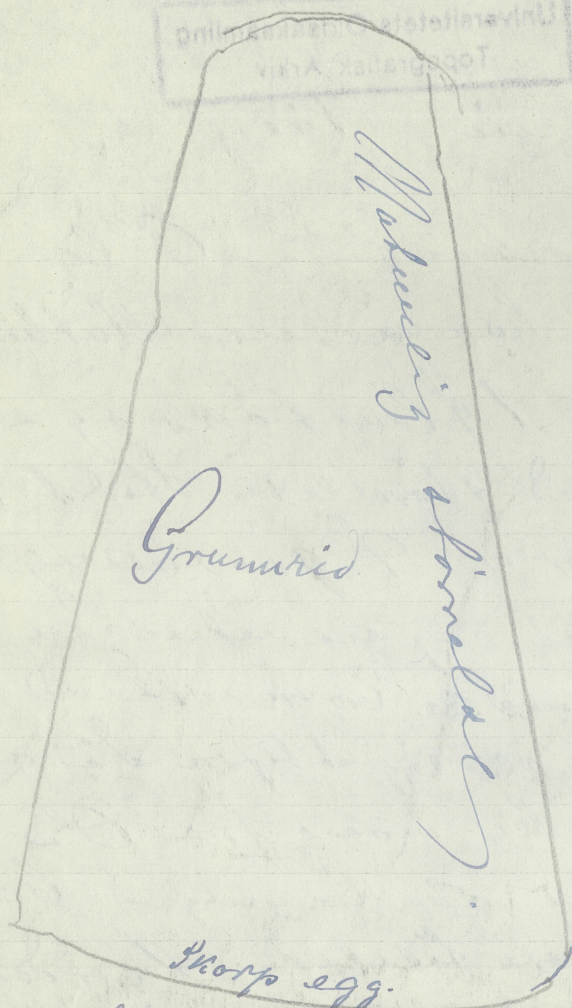 Universitetets Oldsaksamling
Topografisk Arkiv
Naturlig størrelse.
Grunnrid
Skarp egg.